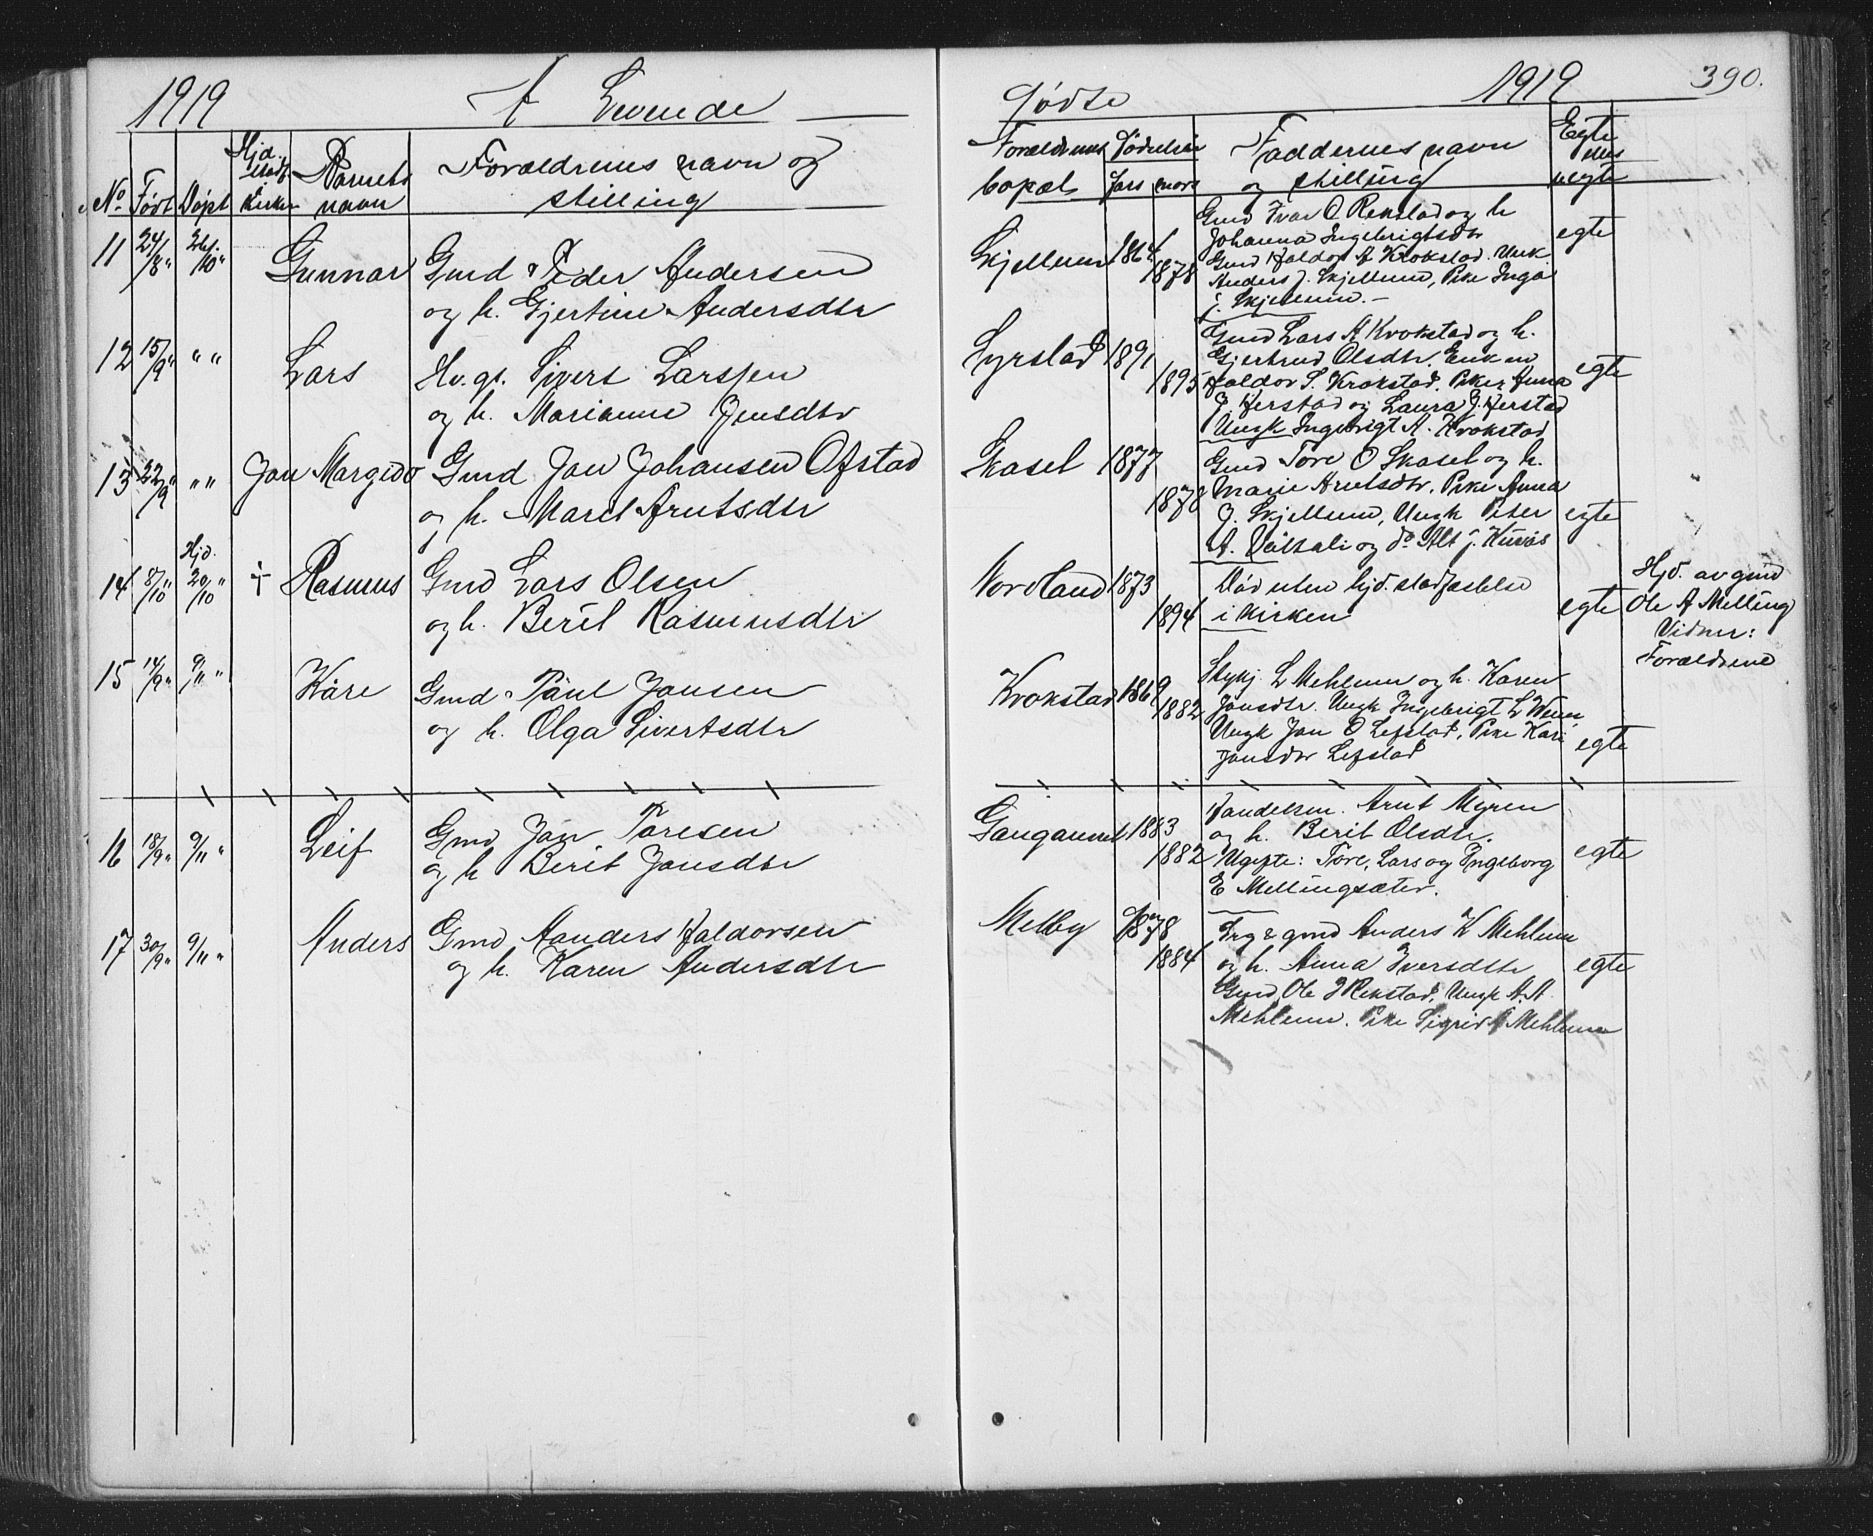 1919 A Levende
No Født Døpt Hjd. stadf. i Kirken Barnets navn Forældrenes navn og stilling
11 24/8 2bf./10 Gunnar Gmd Peder Andersen
og h. Gjertine Andersdtr
12 15/9 " " Lars Hv.gs. Sivert Larssen
og h. Marianne Jensdtr
13 22/9 " " Jon Margido Gmd Jon Johansen Ofstad
og h. Maret Arntsdtr
14 8/10 Hjd. 20/10 † Rasmus Gmd Lars Olsen
og h. Berit Rasmusdtr
15 14/9 9/11 Kåre Gmd Paul Jonsen
og h. Olga Sivertsdtr
16 18/9 9/11 Leif Gmd Jon Toresen
og h Berit Jonsdtr
17 30/9 9/11 Anders Gmd Aanders Haldorsen
og h. Karen Andersdtr
Fødte 1919 390.
Forældrenes bopæl Fødselsår Fars mors Faddernes navn og stilling Egte eller uegte
Skjellum 1864 1878 Gmd Ivar O Rekstad og h
Johanna Ingebrigtsdtr egte
Gmd Haldor A Krokstad. Unk
Anders J. Skjellum, Pike Inga
J. Skjellum. —
Syrstad 1891 1895 Gmd Lars A Krokstad og h.
Gjertrud Olsdtr. Enkem
Haldor S. Krokstad. Piker Anna egte
J. Herstad og Laura J. Herstad
Ungk Ingebrigt A. Krokstad
Skasel 1877 1878 Gmd Tore O Skasel og h.
Marie Arntsdtr. Pike Anna
J. Skjellum, Ungk Peter egte
A. Dålsali og do Alt J. Kuvås
Nordland 1873 1894 Død uten hjd. stadfæstelse
i Kirken egte
Hjd. av gmd
Ole A Melling
Vidner:
Forældrene
Krokstad 1869 1882 Skykj. L Mehlum og h. Karen
Jonsdtr. Ungk Ingebrigt L
Ungk Jon O Lefstad, Pike Kari egte
Jonsdtr Lefstad
Gangaunet 1883 1882 Handelsm. Arnt Myren
og h. Berit Olsdtr.
Ugifte: Tore, Lars og Ingeborg egte
E Mellingsæter.
Melby 1878 1884 Brg & gmd Anders K Mehlum
og h. Anna Iversdtr egte
Gmd Ole I Rekstad, Ungk A. A
Mehlum. Pike Sigrid A Mehlum